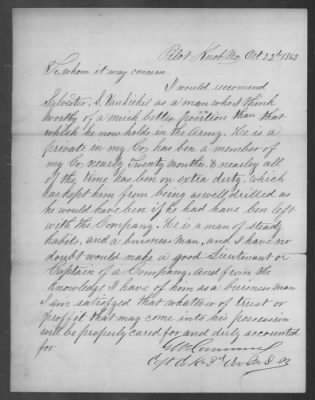 Pilot Knob Mo Oct 22d 1863
To, whom it may concern
I would recomend
Sylvester. S. Vansickel as a man who I think
worthy of a much better position than that
which he now holds in the Army. He is a
private in my Co, has ben a member of
my Co nearly Twenty Months. & nearly all
of the time has ben on extra duty. which
has kept him from being as well drilled as
he would have ben if he had have ben left
with the Company. He is a man of steady
habits, and a business man, and I have no
doubt would make a good Lieutenant or
Captain of a Company. And from the
Knowledge I have of him as a business man
I am satisfyed that whatever of trust or
proffit that may come into his possession
will be properly cared for and duly accounted
for
Capt Co 3d